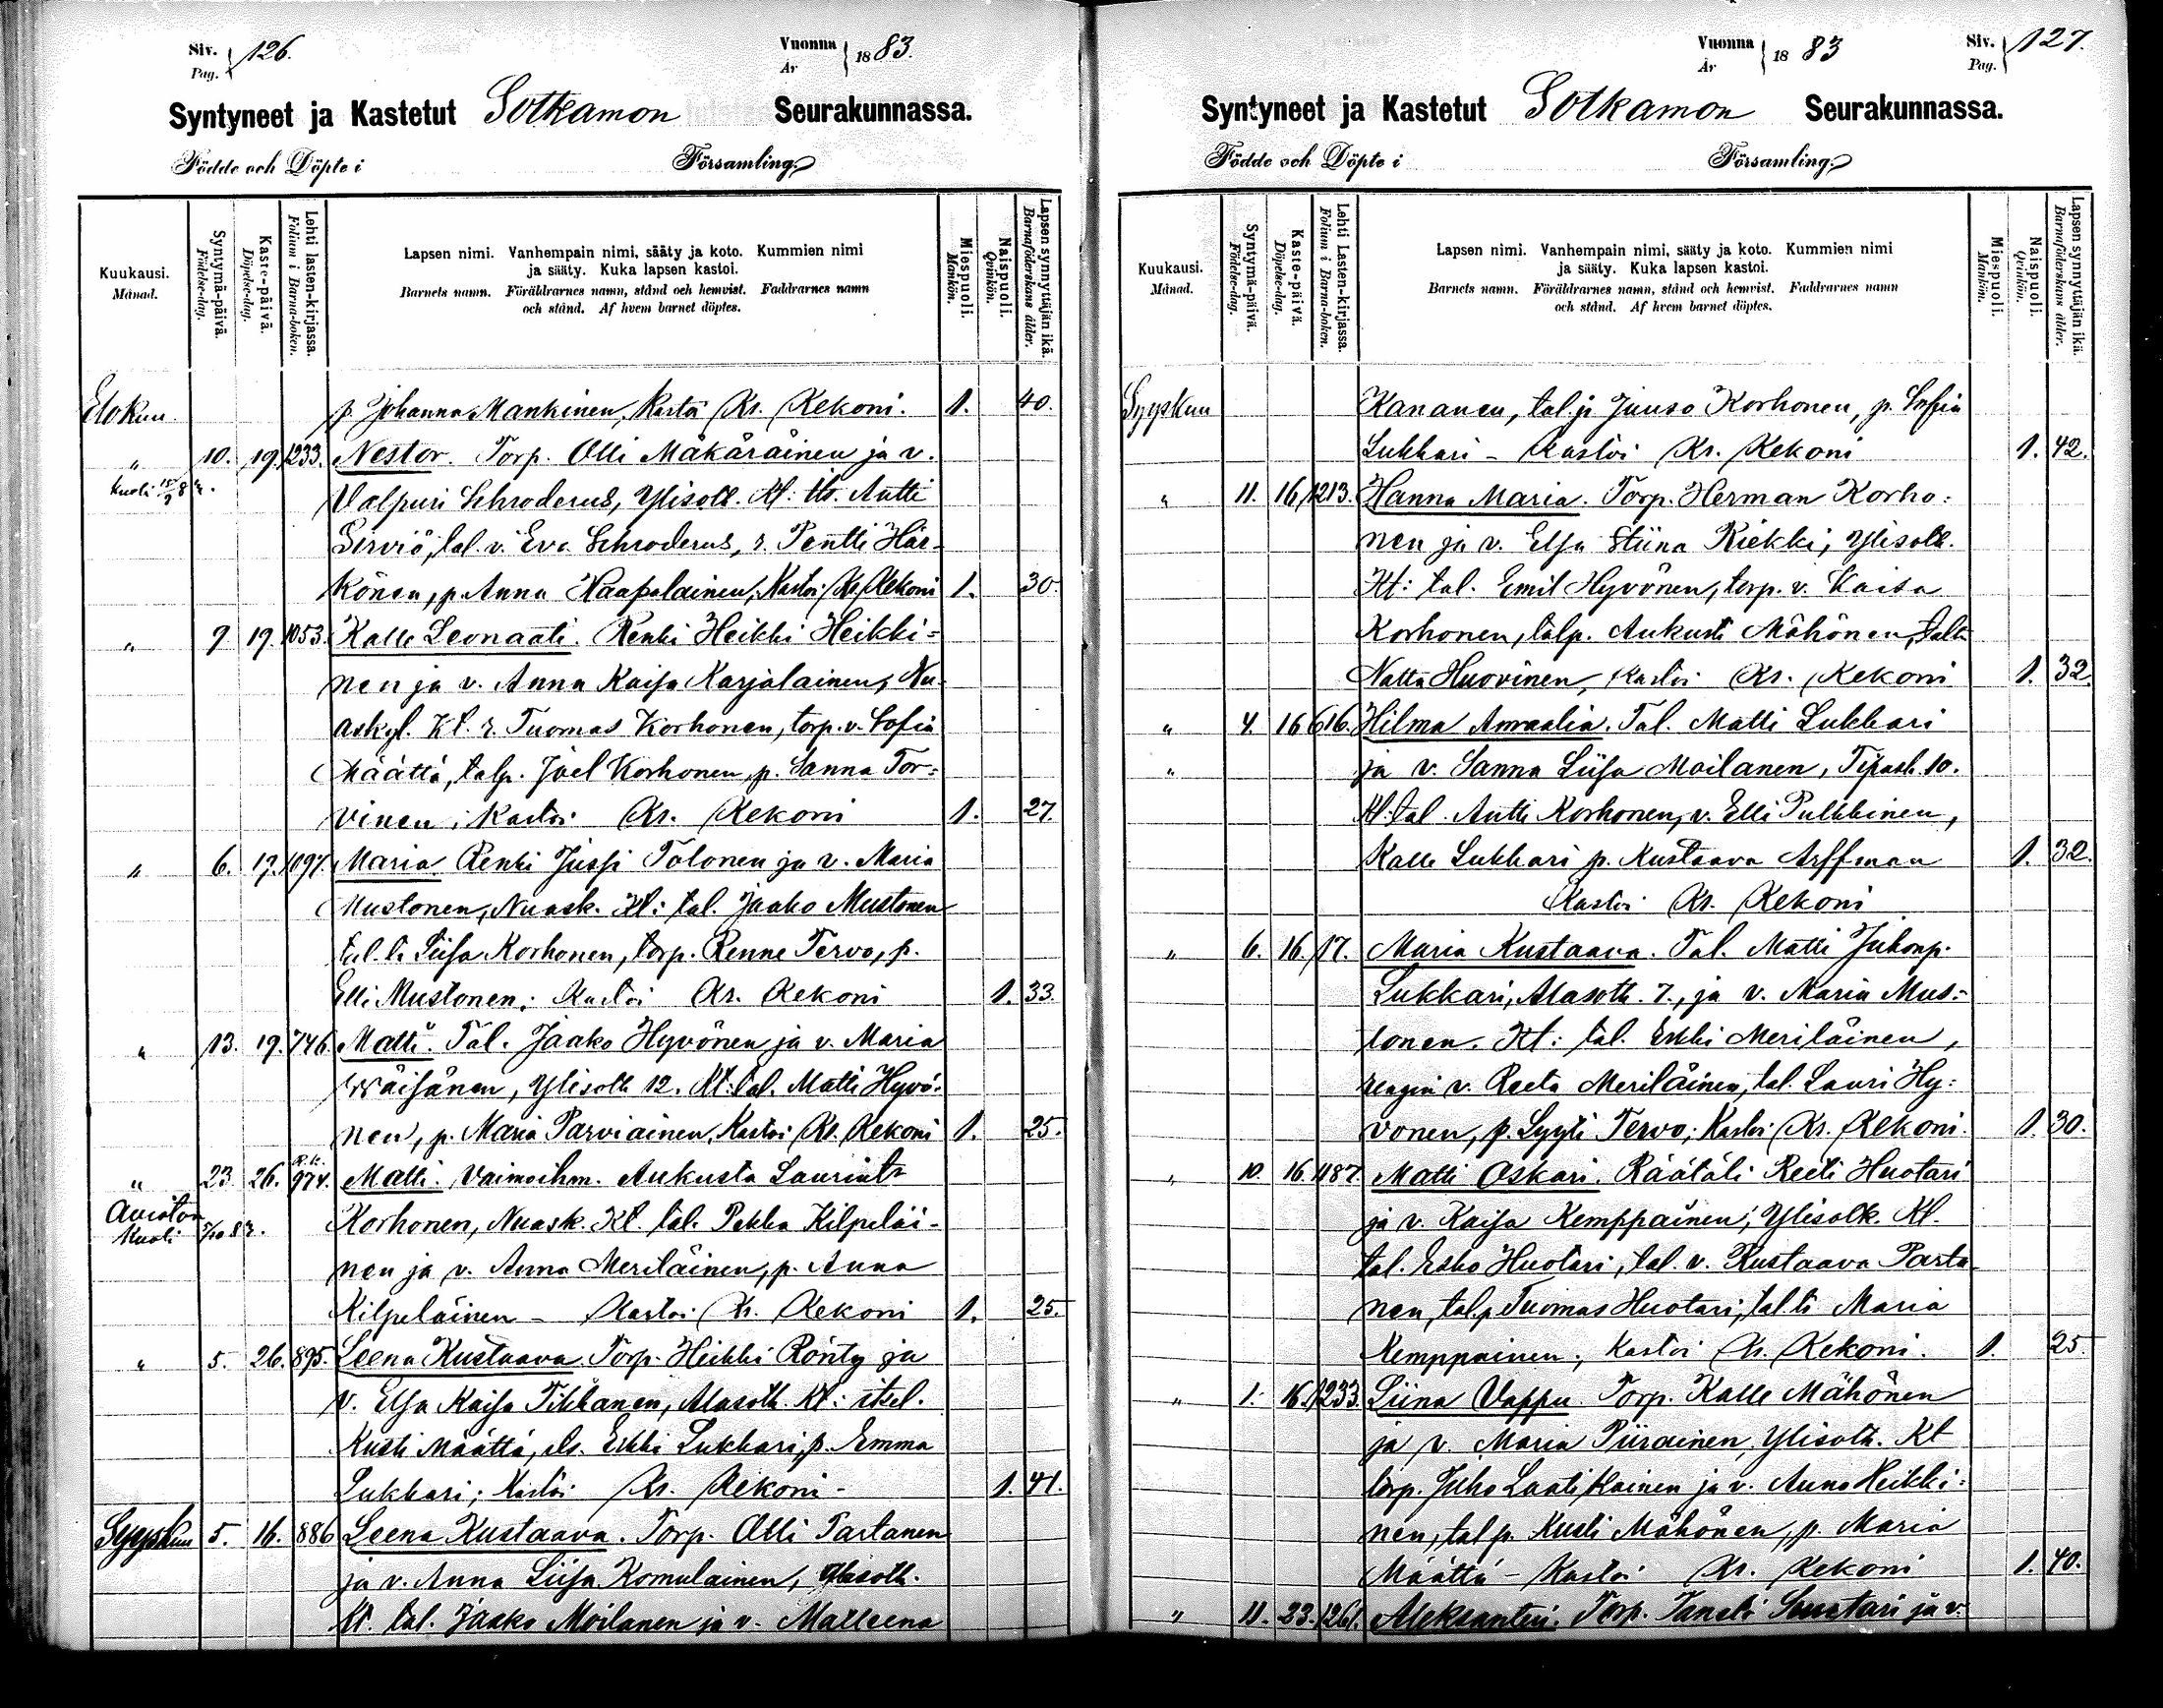 Siv. Pag. 126. Vuonna År 1883.
Syntyneet ja Kastetut Sotkamon Seurakunnassa.
Födde och Döpte i Församling.
Kuukausi. Månad.
Syntymä-päivä. Födelse-dag.
Kaste-päivä. Döpelse-dag.
Lehti lasten-kirjassa. Folium i Barna-boken.
Lapsen nimi. Vanhempain nimi, sääty ja koto. Kummien nimi
ja sääty. Kuka lapsen kastoi.
Barnets namn. Föräldrarnes namn, stånd och hemvist. Faddrarnes namn
och stånd. Af hvem barnet döptes.
Miespuoli. Mankön.
Naispuoli. Qvinkön.
Lapsen synnyttäjän ikä. Barnaföderskans ålder.
Elokuu. p. Johanna Mankinen, Kastoi Kr. Rekoni. 1. 40.
" 10. 19. 1233. Nestor. Torp. Olli Mäkäräinen ja v.
Kuoli Valpuri Schroderus, Ylisotk. Kt: its. Antti
Serviö, tal. v. Eva Schroderus, r. Pentti Här-
könen, p. Anna Haapalainen; Kastoi Kr. Rekoni 1. 30.
" 9 19. 1053. Kalle Leonaati. Renki Heikki Heikki-
nen ja v. Anna Kaisa Karjalainen, Nu-
ask. yl. Kt. r. Tuomas Korhonen, torp. v. Sofia
Määttä, talp. Joel Korhonen, p. Sanna Tor-
vinen; Kastoi Kr. Rekoni 1. 27.
" 6. 19. 1097. Maria Renki Jussi Tolonen ja v. Maria
Mustonen, Nuask. Kt: tal. Jaako Mustonen
tal. t. Liisa Korhonen, torp. Renne Tervo, p.
Elli Mustonen; Kastoi Kr. Rekoni 1. 33.
" 13. 19. 746. Matti. Tal. Jaako Hyvönen ja v. Maria
Wäisänen, Ylisotk 12. Kt: tal. Matti Hyvö-
nen, p. Maria Parviainen, Kastoi Kr. Rekoni 1. 25.
R.k.
" 23. 26. 974. Matti. Vaimoihm. Aukusta Laurint.
Avioton Kuoli 5/10 83. Korhonen, Nuask. Kt. tal. Pekka Kilpeläi-
nen ja v. Anna Meriläinen, p. Anna
Kilpeläinen - Kastoi Kr. Rekoni 1. 25.
" 5. 26. 895. Leena Kustaava. Torp. Heikki Rönty ja
v. Elsa Kaisa Tikkanen, Alasotk. Kt: itsel.
Kusti Määttä, Erkki Lukkari, p. Emma
Lukkari; Kastoi Kr. Rekoni - 1. 41.
Syyskuu 5. 16. 886 Leena Kustaava. Torp. Olli Partanen
ja v. Anna Liisa Komulainen, Alasotk.
Kt. tal. Jaako Moilanen ja v. Malleena
Vuonna År 1883 Siv. Pag. 127.
Syntyneet ja Kastetut Sotkamon Seurakunnassa.
Födde och Döpte i Församling.
Kuukausi. Månad.
Syntymä-päivä. Födelse-dag.
Kaste-päivä. Döpelse-dag.
Lehti Lasten-kirjassa. Folium i Barna-boken.
Lapsen nimi. Vanhempain nimi, sääty ja koto. Kummien nimi
ja sääty. Kuka lapsen kastoi.
Barnets namn. Föräldrarnes namn, stånd och hemvist. Faddrarnes namn
och stånd. Af hvem barnet döptes.
Miespuoli. Mankön.
Naispuoli. Qvinkön.
Lapsen synnyttäjän ikä. Barnaföderskans ålder.
Syyskuu Kananen, tal.p. Juuso Korhonen, p. Sofia
Lukkari - Kastoi Kr. Rekoni 1. 42.
" 11. 16. 1213. Hanna Maria. Torp. Herman Korho-
nen ja v. Elsa Stiina Riekki, Ylisotk.
Kt: tal. Emil Hyvönen, torp. v. Kaisa
Korhonen, talp. Aukusti Mähönen, talt.
Natta Huovinen, Kastoi Kr. Rekoni 1. 32.
" 4. 16 616. Hilma Amaalia. Tal. Matti Lukkari
" ja v. Sanna Liisa Moilanen, Tipask. 10.
Kt: tal. Antti Korhonen, v. Elli Pulkkinen,
Kalle Lukkari p. Kustaava Arffman 1. 32.
Kastoi Kr. Rekoni
" 6. 16. 17. Maria Kustaava. Tal. Matti Juhonp.
Lukkari, Alasotk. 7., ja v. Maria Mus-
tonen. Kt: tal. Erkki Meriläinen,
rengin v. Reeta Meriläinen, tal. Lauri Hy-
vönen, p. Lyyti Tervo; Kastoi Kr. Rekoni. 1. 30.
" 10. 16. 487. Matti Oskari. Räätäli Reeti Huotari
ja v. Kaisa Kemppainen, Ylisotk. Kt.
tal. Esko Huotari, tal. v. Kustaava Parta-
nen, tal.p. Tuomas Huotari, tal.t. Maria
Kemppainen; Kastoi Kr. Rekoni. 1. 25.
" 1. 16. 1233. Liina Vappu. Torp. Kalle Mähönen
ja v. Maria Piirainen, Ylisotk. Kt
torp. Juho Laatikkainen ja v. Anna Heikki-
nen, talp. Kusti Mähönen, p. Maria
Määttä - Kastoi Kr. Rekoni 1. 40.
" 11. 23. 1261. Aleksanteri. Torp. Taneli Suutari ja v.